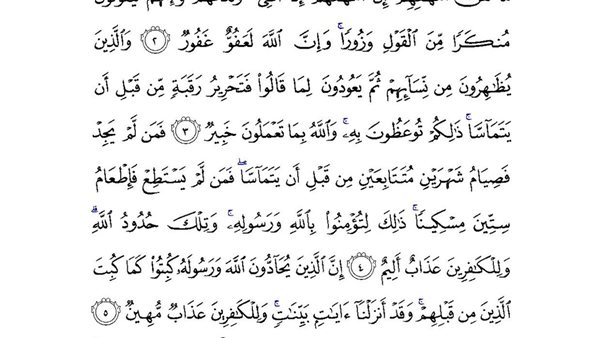 مُنكَرًا مِّنَ ٱلْقَوْلِ وَزُورًا ۚ وَإِنَّ ٱللَّهَ لَعَفُوٌّ غَفُورٌ ٢ وَٱلَّذِينَ
يُظَٰهِرُونَ مِن نِّسَآئِهِمْ ثُمَّ يَعُودُونَ لِمَا قَالُوا۟ فَتَحْرِيرُ رَقَبَةٍ مِّن قَبْلِ أَن
يَتَمَآسَّا ۚ ذَٰلِكُمْ تُوعَظُونَ بِهِۦ ۚ وَٱللَّهُ بِمَا تَعْمَلُونَ خَبِيرٌ ٣ فَمَن لَّمْ يَجِدْ
فَصِيَامُ شَهْرَيْنِ مُتَتَابِعَيْنِ مِن قَبْلِ أَن يَتَمَآسَّا ۖ فَمَن لَّمْ يَسْتَطِعْ فَإِطْعَامُ
سِتِّينَ مِسْكِينًا ۚ ذَٰلِكَ لِتُؤْمِنُوا۟ بِٱللَّهِ وَرَسُولِهِۦ ۚ وَتِلْكَ حُدُودُ ٱللَّهِ ۗ
وَلِلْكَٰفِرِينَ عَذَابٌ أَلِيمٌ ٤ إِنَّ ٱلَّذِينَ يُحَآدُّونَ ٱللَّهَ وَرَسُولَهُۥ كُبِتُوا۟ كَمَا كُبِتَ
ٱلَّذِينَ مِن قَبْلِهِمْ ۚ وَقَدْ أَنزَلْنَآ ءَايَٰتٍۭ بَيِّنَٰتٍ ۚ وَلِلْكَٰفِرِينَ عَذَابٌ مُّهِينٌ ٥